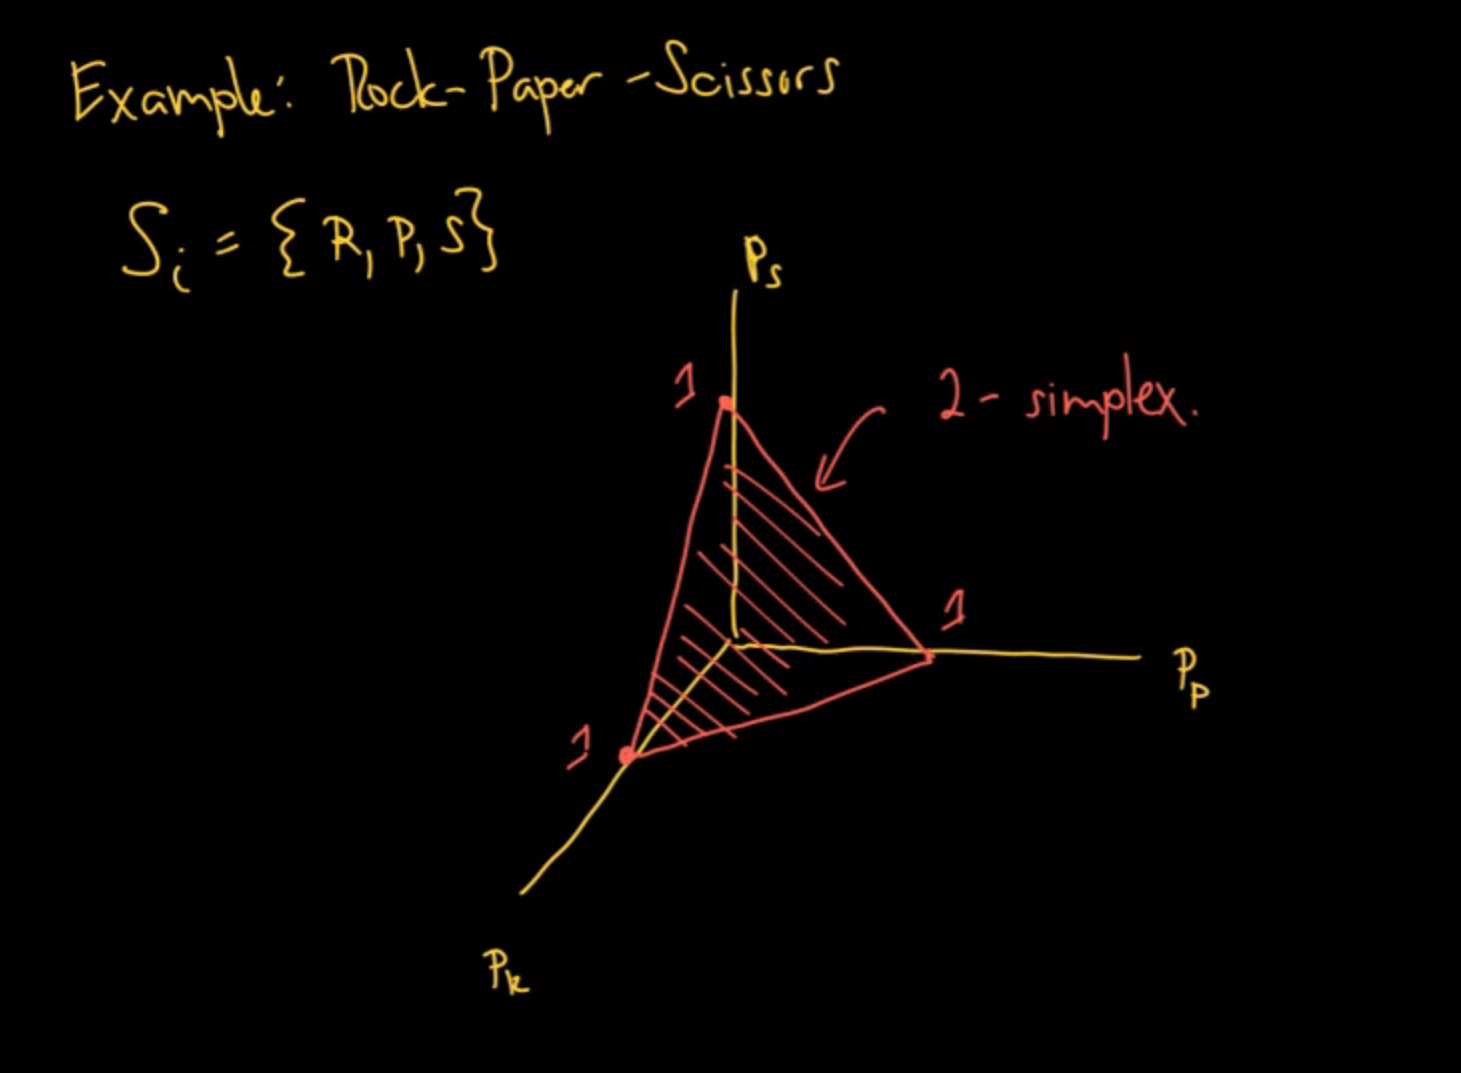 Example: Rock-Paper-Scissors
S_i = {R, P, S}
P_s
1
2-simplex.
1
P_p
1
P_k